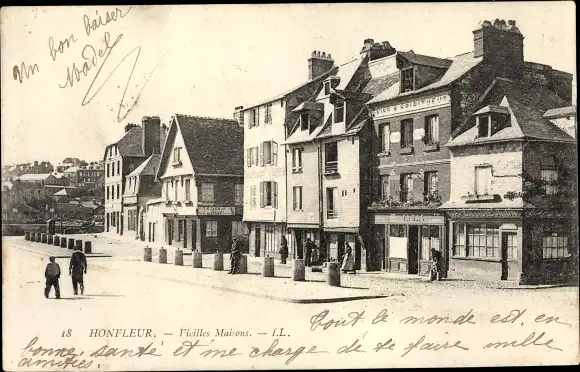 Un bon baiser
Madel
VINS & SPIRITUEUX
18 HONFLEUR. - Vieilles Maisons. - LL.
tout le monde est en
bonne santé et me charge de te faire mille
amitiés.